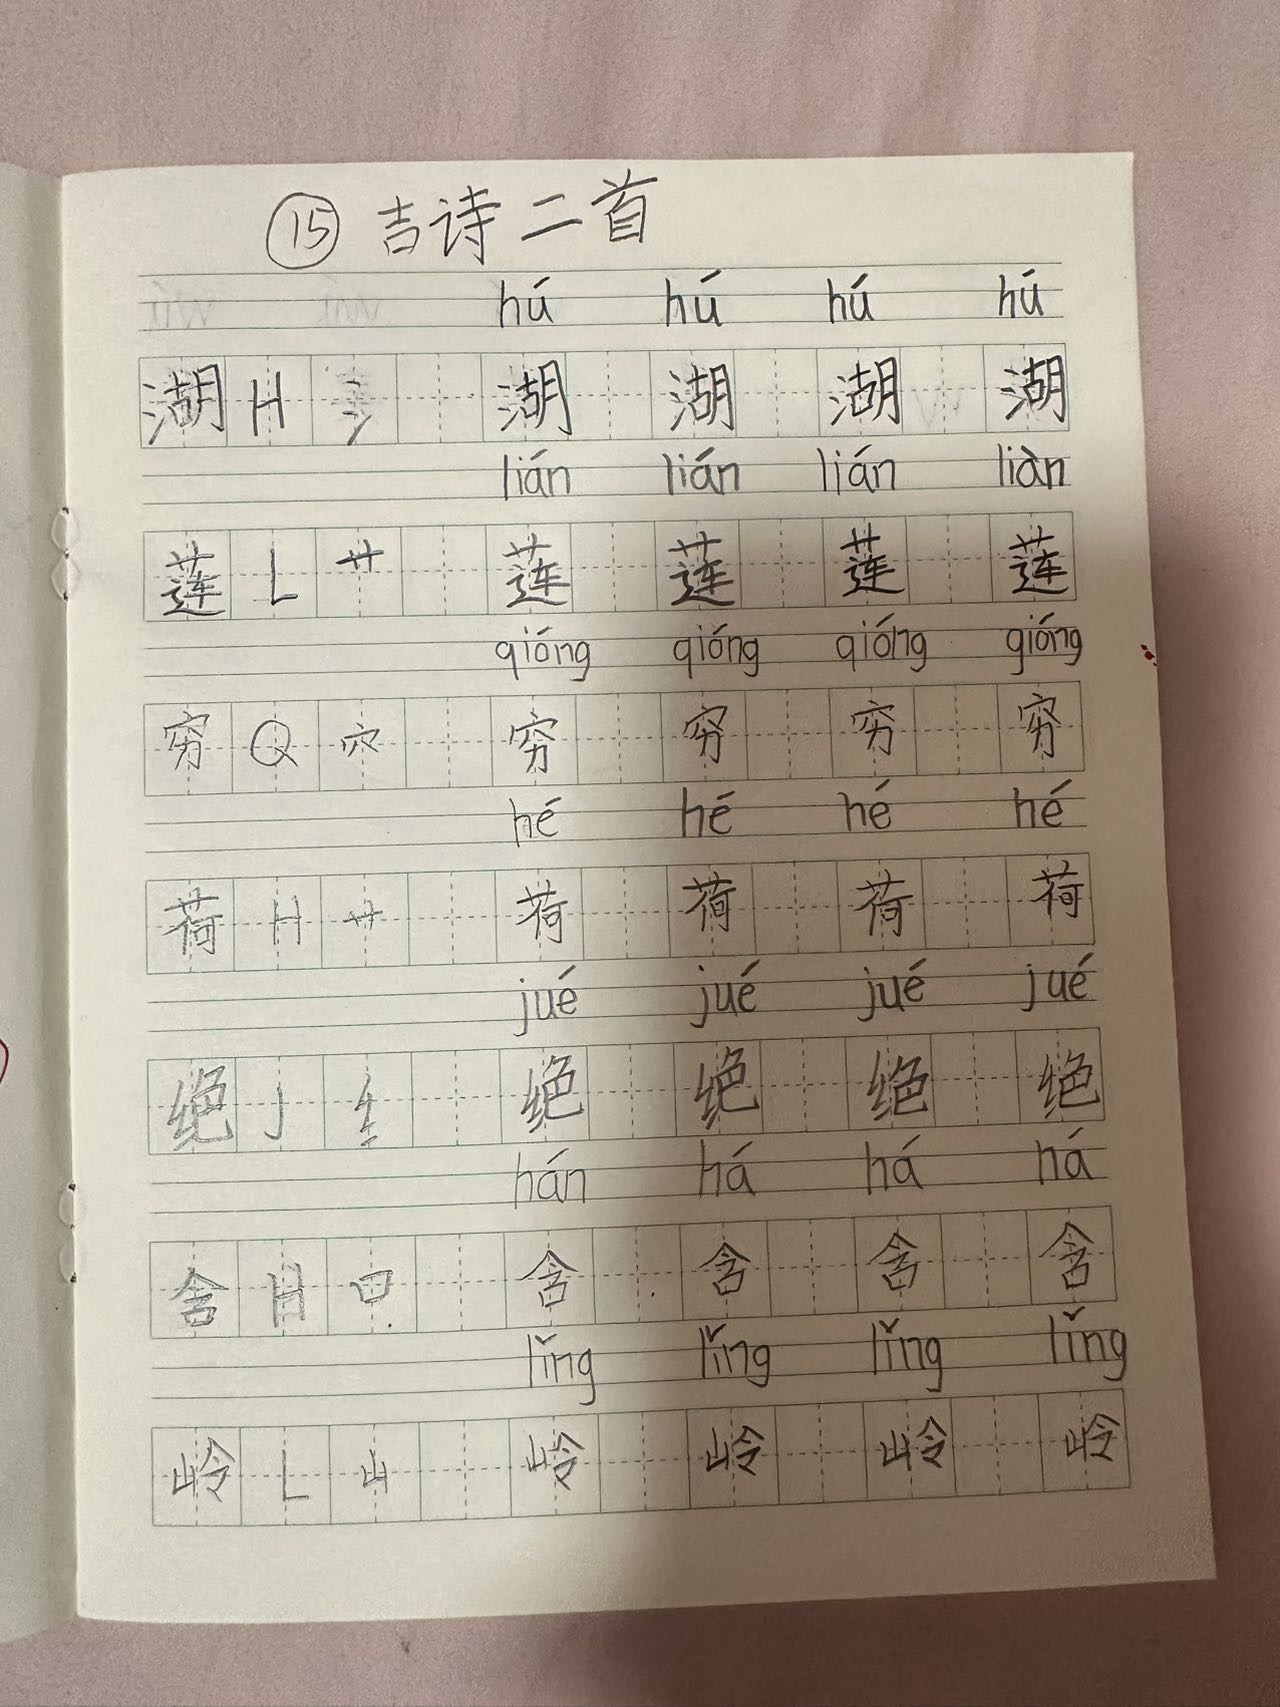 15 吉诗二首
hú hú hú hú
湖 H 氵 湖 湖 湖 湖
lián lián lián liàn
莲 L 艹 莲 莲 莲 莲
qióng qióng qióng qióng
穷 Q 穴 穷 穷 穷 穷
hé hé hé hé
荷 H 艹 荷 荷 荷 荷
jué jué jué jué
绝 J 纟 绝 绝 绝 绝
hán há há há
含 H 口 含 含 含 含
lǐng lǐng lǐng lǐng
岭 L 山 岭 岭 岭 岭